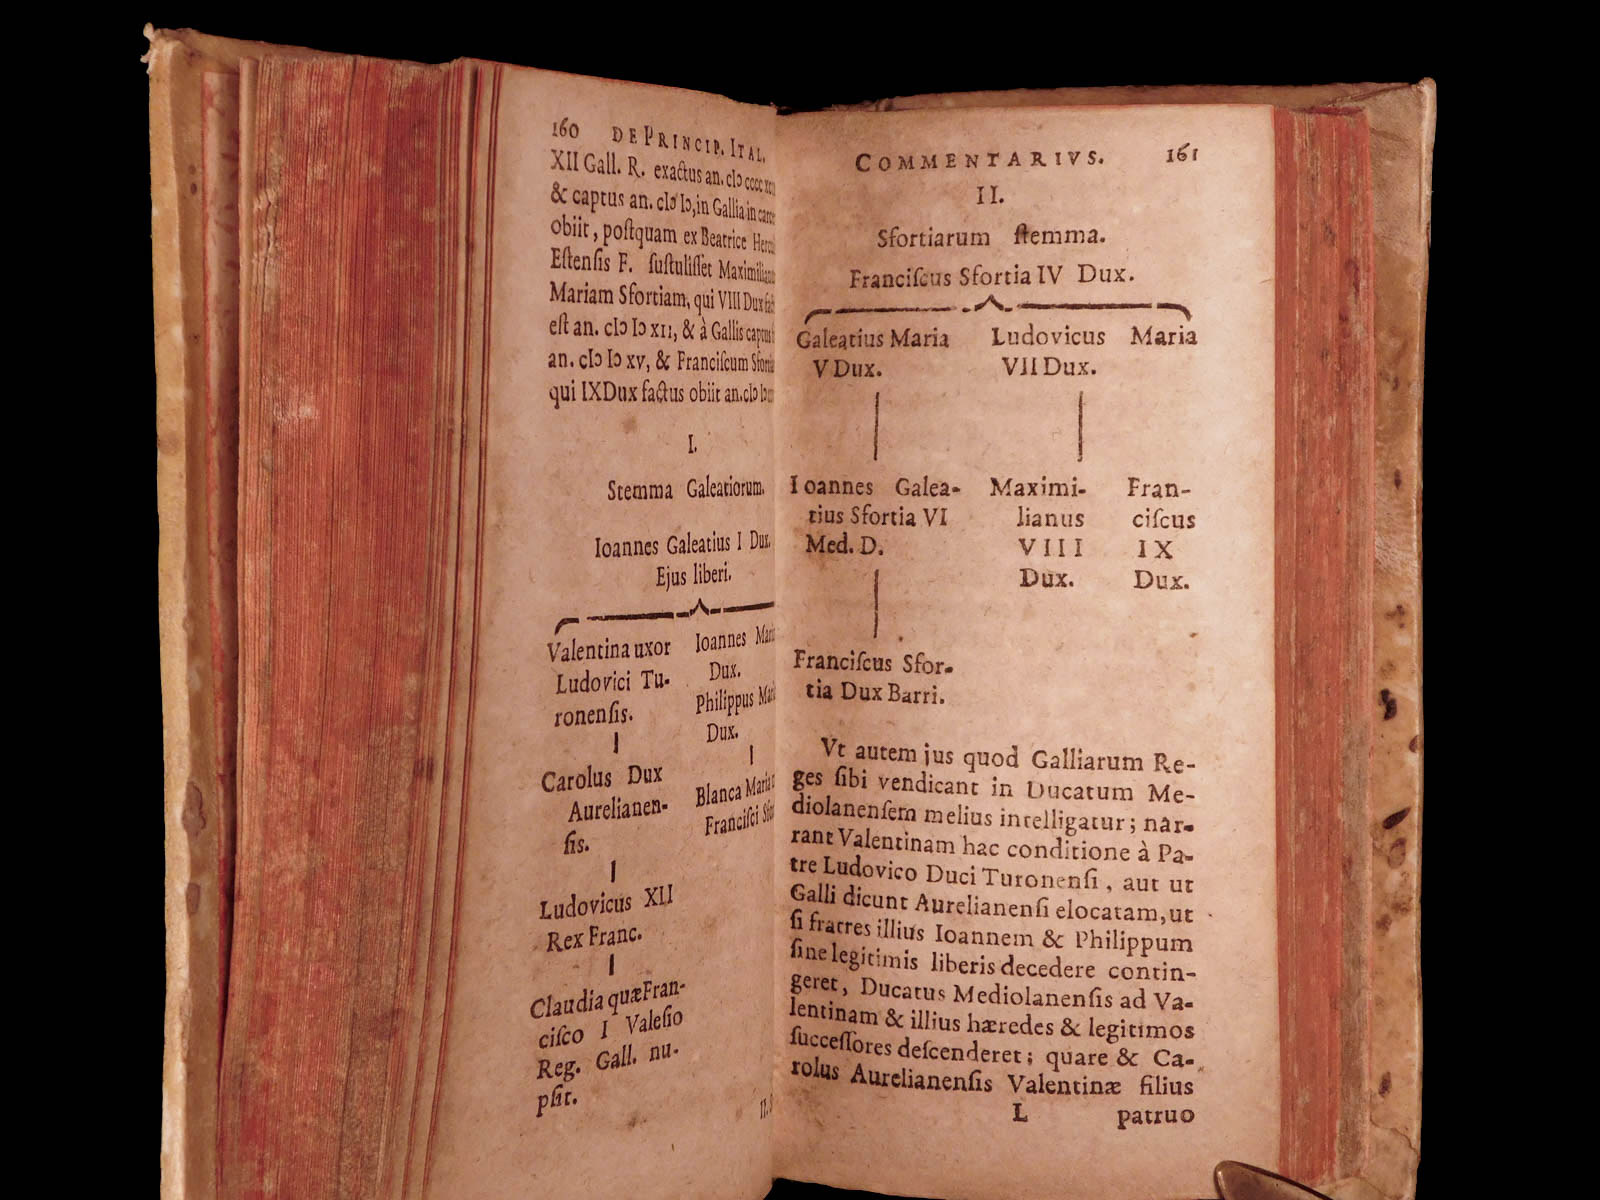 160 DE PRINCIP. ITAL.
XII Gall. R. exactus an. cIɔ cccc
& captus an. cIɔ Iɔ, in Gallia in
obiit, poſtquam ex Beatrice
Eſtenſis F. ſuſtuliſſet
Mariam Sfortiam, qui VIII Dux
eſt an. cIɔ Iɔ XII, & à Gallis
an. cIɔ Iɔ XV, & Franciſcum
qui IX Dux factus obiit an. cIɔ
I.
Stemma Galeatiorum.
Ioannes Galeatius I Dux.
Ejus liberi.
Valentina uxor
Ludovici Tu-
ronenſis.
Carolus Dux
Aurelianen-
ſis.
Ludovicus XII
Rex Franc.
Claudia quæ Fran-
ciſco I Valeſio
Reg. Gall. nu-
pſit.
Ioannes
Dux.
Philippus
Dux.
Blanca Maria
Franciſci
II.
COMMENTARIVS. 161
II.
Sfortiarum ſtemma.
Franciſcus Sfortia IV Dux.
Galeatius Maria Ludovicus Maria
V Dux. VII Dux.
Ioannes Galea- Maximi- Fran-
tius Sfortia VI lianus ciſcus
Med. D. VIII IX
Dux. Dux.
Franciſcus Sfor-
tia Dux Barri.
Vt autem jus quod Galliarum Re-
ges ſibi vendicant in Ducatum Me-
diolanenſem melius intelligatur; nar-
rant Valentinam hac conditione à Pa-
tre Ludovico Duci Turonenſi, aut ut
Galli dicunt Aurelianenſi elocatam, ut
ſi fratres illius Ioannem & Philippum
ſine legitimis liberis decedere contin-
geret, Ducatus Mediolanenſis ad Va-
lentinam & illius hæredes & legitimos
ſucceſſores deſcenderet; quare & Ca-
rolus Aurelianenſis Valentinæ filius
L patruo